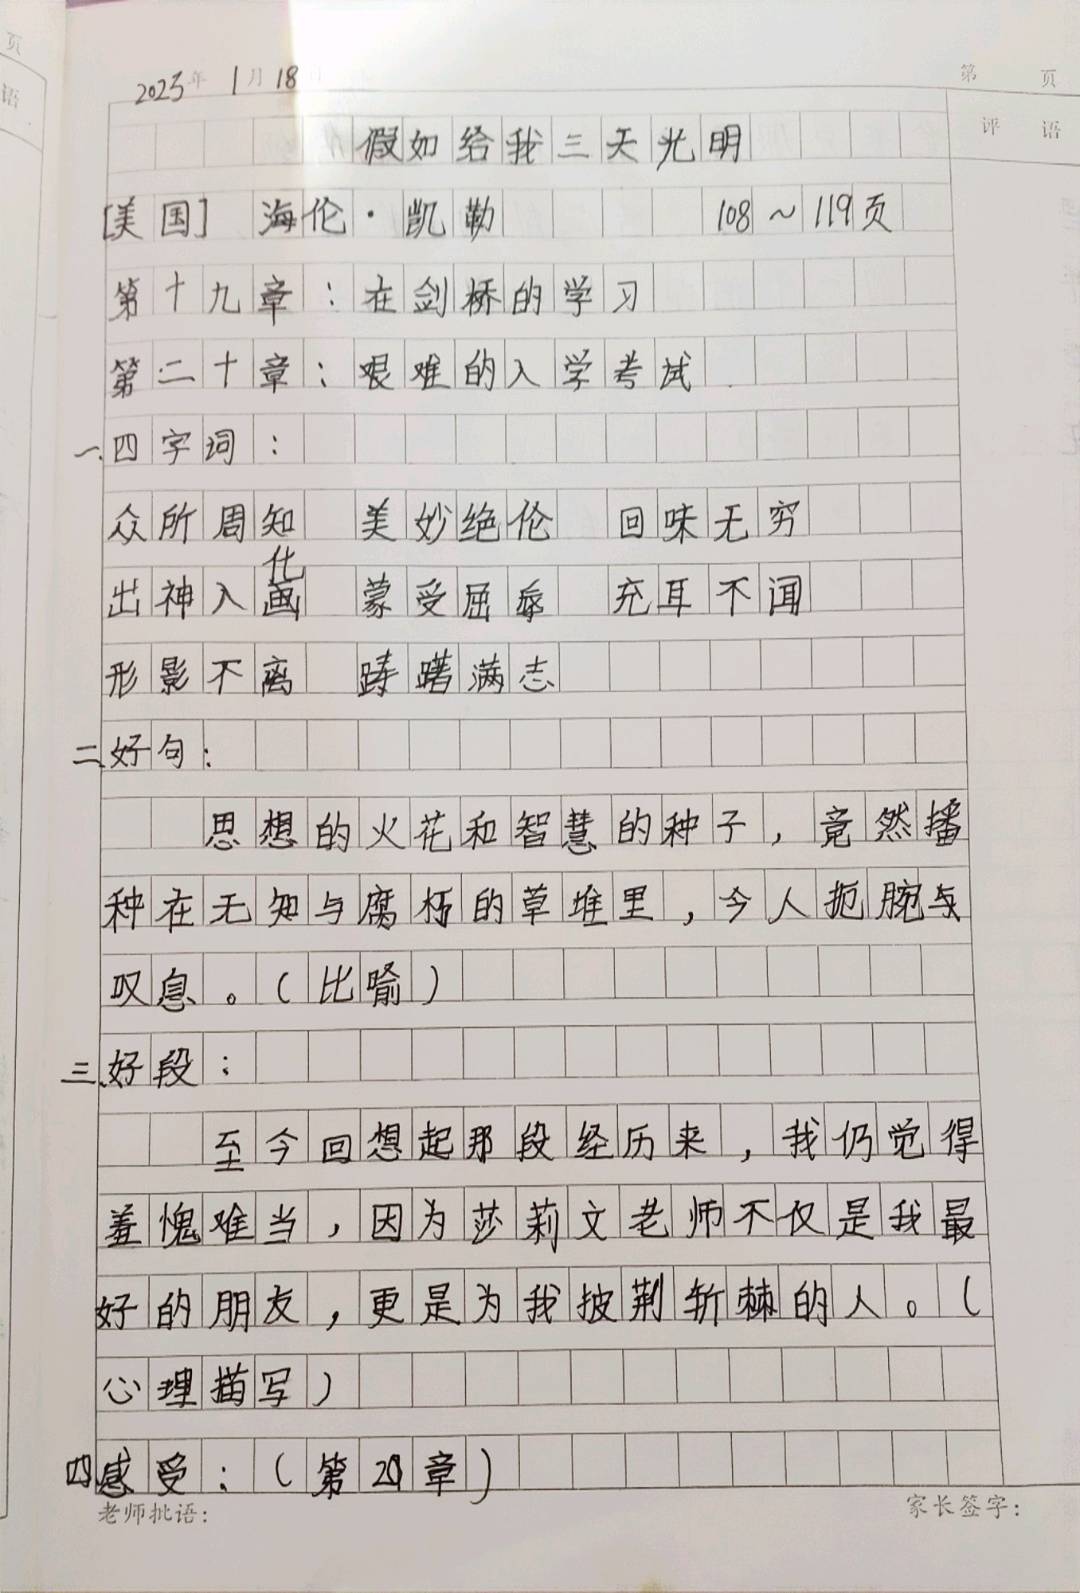 页
语
2023年1月18日
第 页
评 语
假如给我三天光明
[美国] 海伦·凯勒 108～119页
第十九章：在剑桥的学习
第二十章：艰难的入学考试
一、四字词：
众所周知 美妙绝伦 回味无穷
出神入化 蒙受屈辱 充耳不闻
形影不离 踌躇满志
二、好句：
思想的火花和智慧的种子，竟然播
种在无知与腐朽的草堆里，令人扼腕与
叹息。（比喻）
三、好段：
至今回想起那段经历来，我仍觉得
羞愧难当，因为莎莉文老师不仅是我最
好的朋友，更是为我披荆斩棘的人。（
心理描写）
四、感受：（第20章）
老师批语： 家长签字：